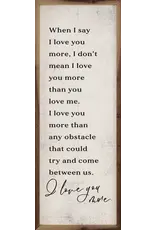 When I say
I love you
more, I don't
mean I love
you more
than you
love me.
I love you
more than
any obstacle
that could
try and come
between us.
I love you
more